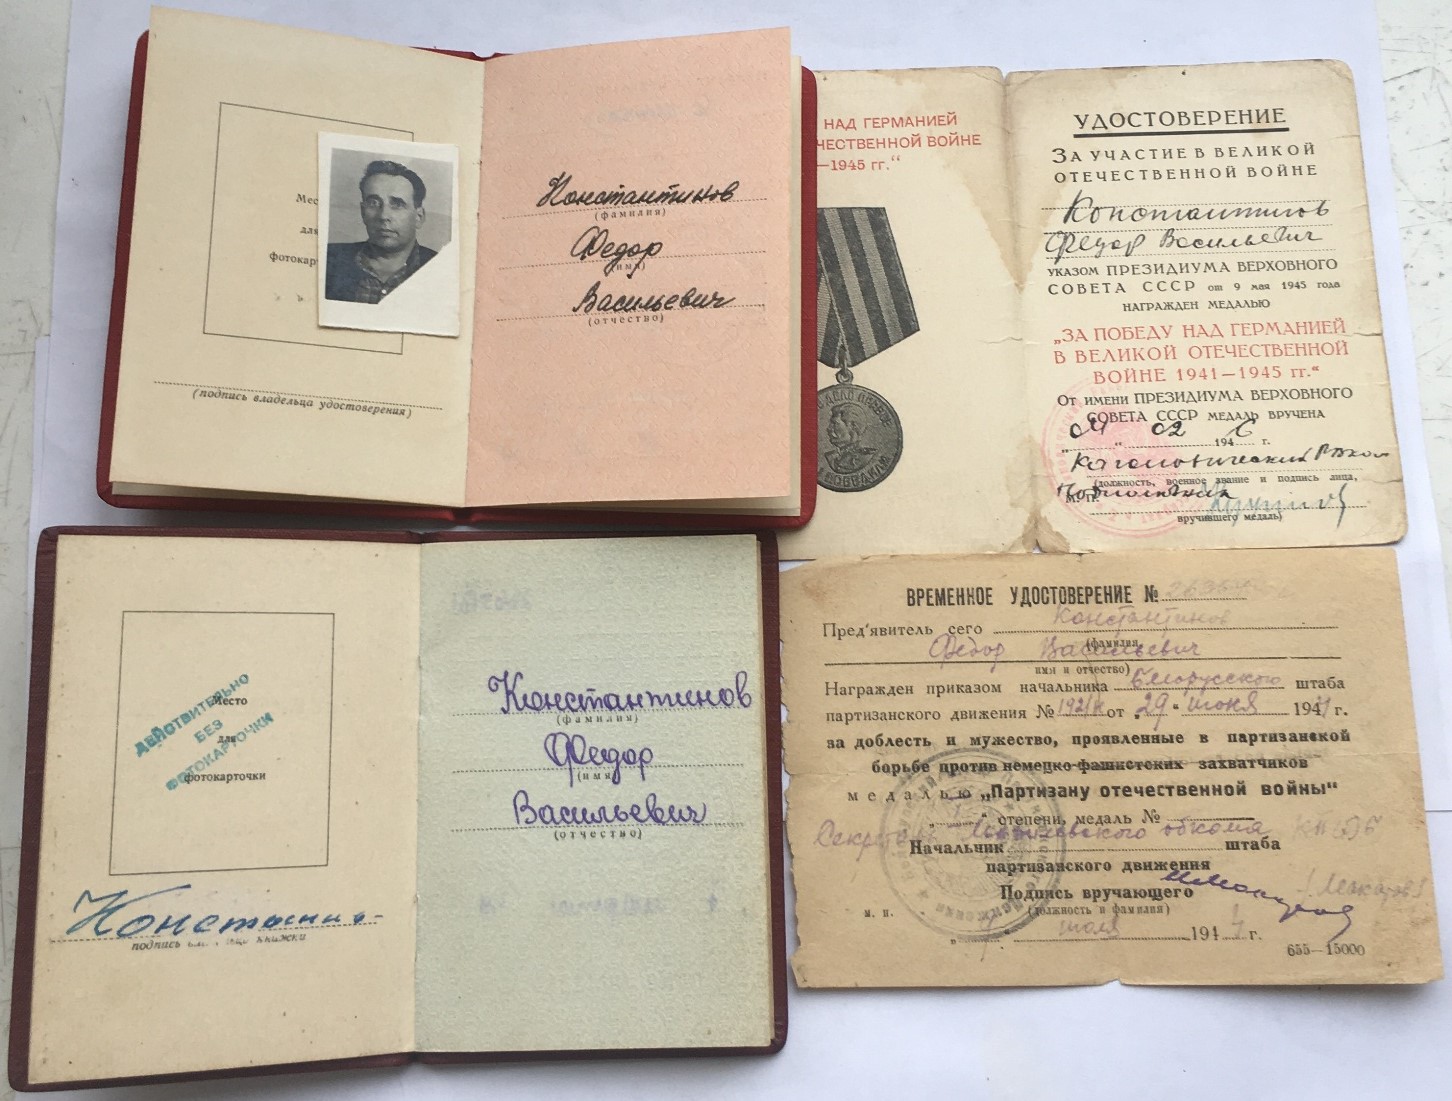 Мес
для
фотокар
(подпись владельца удостоверения)
Константинов
(фамилия)
Федор
(имя)
Васильевич
(отчество)
НАД ГЕРМАНИЕЙ
ЧЕСТВЕННОЙ ВОЙНЕ
—1945 гг."
УДОСТОВЕРЕНИЕ
ЗА УЧАСТИЕ В ВЕЛИКОЙ
ОТЕЧЕСТВЕННОЙ ВОЙНЕ
Константинов
Федор Васильевич
УКАЗОМ ПРЕЗИДИУМА ВЕРХОВНОГО
СОВЕТА СССР от 9 мая 1945 года
НАГРАЖДЕН МЕДАЛЬЮ
„ЗА ПОБЕДУ НАД ГЕРМАНИЕЙ
В ВЕЛИКОЙ ОТЕЧЕСТВЕННОЙ
ВОЙНЕ 1941—1945 гг."
От имени ПРЕЗИДИУМА ВЕРХОВНОГО
СОВЕТА СССР МЕДАЛЬ ВРУЧЕНА
02 1946 г.
(должность, военное звание и подпись лица,
М. П.
вручившего медаль)
Место
для
фотокарточки
ДЕЙСТВИТЕЛЬНО
БЕЗ
ФОТОКАРТОЧКИ
подпись книжки
Константинов
(фамилия)
Федор
(имя
Васильевич
(отчество)
ВРЕМЕННОЕ УДОСТОВЕРЕНИЕ №
Пред'явитель сего Константинов
(фамилия
Федор Васильевич
имя и отчество)
Награжден приказом начальника Белорусского штаба
партизанского движения № от „29" июня 194 г.
за доблесть и мужество, проявленные в партизанской
борьбе против немецко-фашистских захватчиков
медалью „Партизану отечественной войны"
степени, медаль №
Секретарь Могилевского обкома
Начальник штаба
партизанского движения
Подпись вручающего
(должность и фамилия)
м. п.
июля 194 г.
655—15000